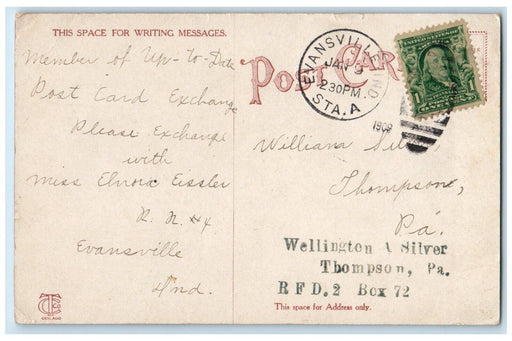 THIS SPACE FOR WRITING MESSAGES.
Member of Up-to-Date
Post Card Exchange
Please Exchange
with
Miss Elnora Eissler
R. R. #4
Evansville
Ind.
CHICAGO
POST CAR
EVANSVILLE IND
JAN 9
230PM
STA.A
1909
1
Thompson,
Pa.
Wellington A Silver
Thompson, Pa.
R F D. 2 Box 72
This space for Address only.